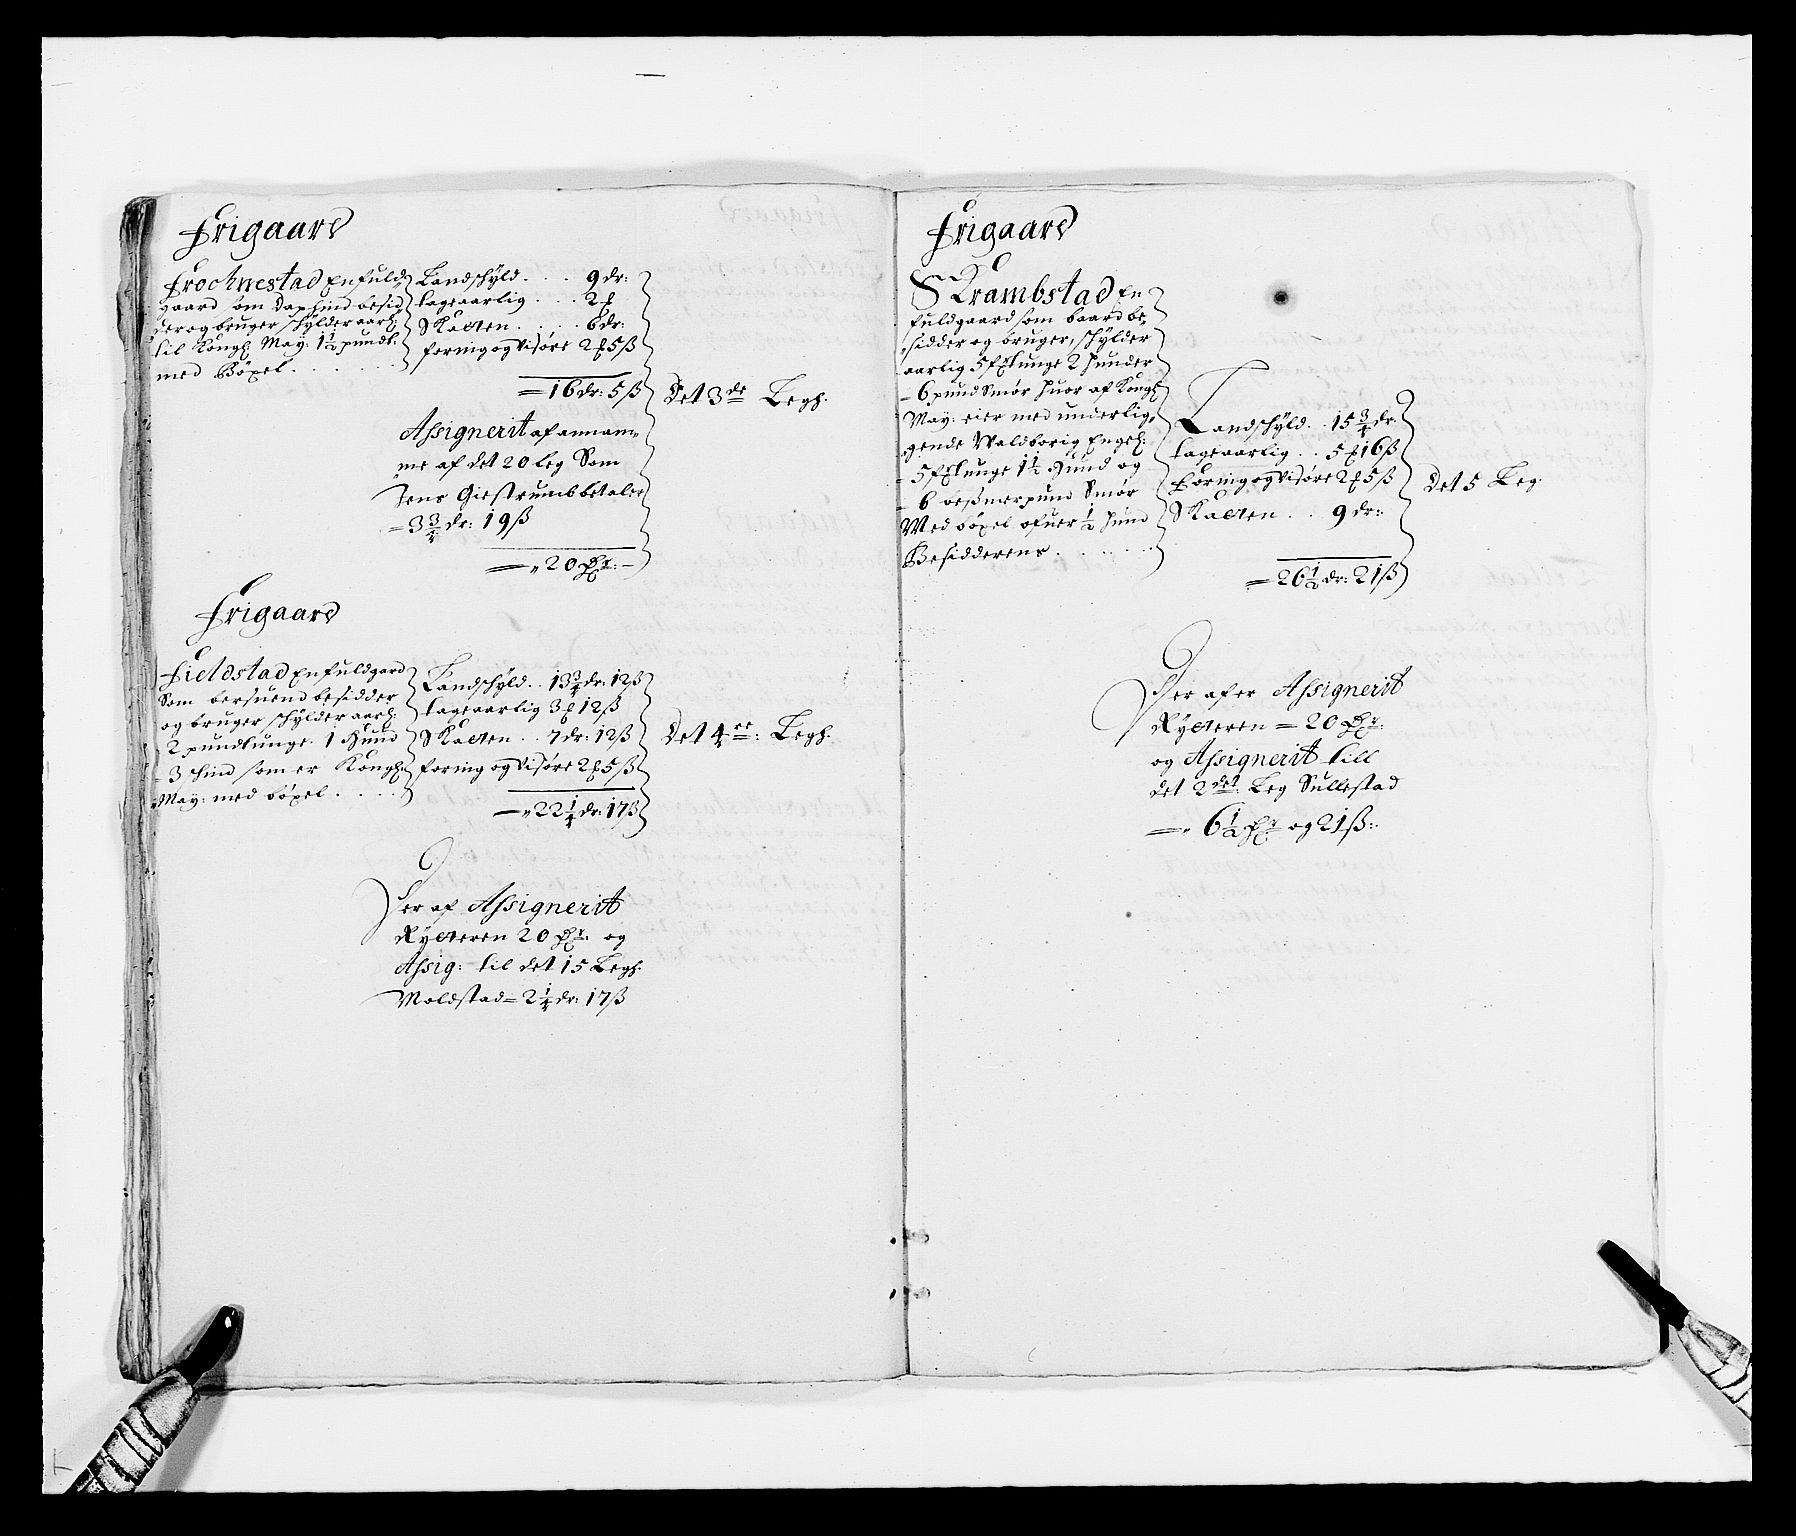 Frigaard
Frochnestad En fuld
gaard som Daphind besid
der og bruger schylder aarl:
til Kongl: May: 1½ pundt:
med Böxel . . . . . .
Landschyld . . . . 9 dr:
tageaarlig . . . . 2
Skatten . . . . . 6 dr:
foring og Visöre 2 5 ß
= 16 dr: 5 ß
Det 3de Legh:
Assignerit af annam,,
me af det 20 leg Som
Jens Giestrumb betaler
= 3¾ dr: 19 ß
= „ 20
Frigaard
Fieldstad En fuldgard
Som bersuend besidder
og bruger schylder aarl:
2 pund tunge. 1 Hund
3 schind som er Kongl:
May: med böxel . . . .
Landschyld . . 13¾ dr: 12 ß
tageaarlig 3 12 ß
Skatten . . 7 dr: 12 ß
foring og Visöre 2 5 ß
= „ 22¼ dr: 17 ß
Det 4de: Legh:
Der af Assignerit
Rytteren 20 og
Assig: til det 15 Legh:
Moldstad = 2¼ dr: 17 ß
Frigaard
SKrambstad En
fuldgaard som baard be,,
sidder og bruger, schylder
aarlig 5 tunge 2 hunder
6 pund Smör huor af Kongl:
May: eier med underlig,,
gende Waldborig Engel:
5 tunge 1½ Hund og
6 besmerpund Smör
Med böxel ofuer ½ hund
Besidderens . . . . . .
Landschyld . . 15¾ dr:
tageaarlig . . 5 16 ß
Foring og Visöre 2 5 ß
Skatten . . 9 dr:
= 26½ dr: 21 ß
Det 5 Leg:
Der af er Assignerit
Rytteren = 20
og Assignerit till
det 2det: Leg Sullestad
= „ 6½ og 21 ß: